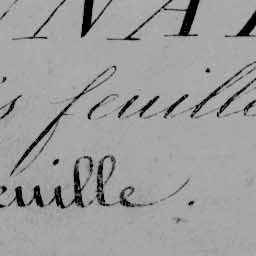 NA
s feuille
euille.